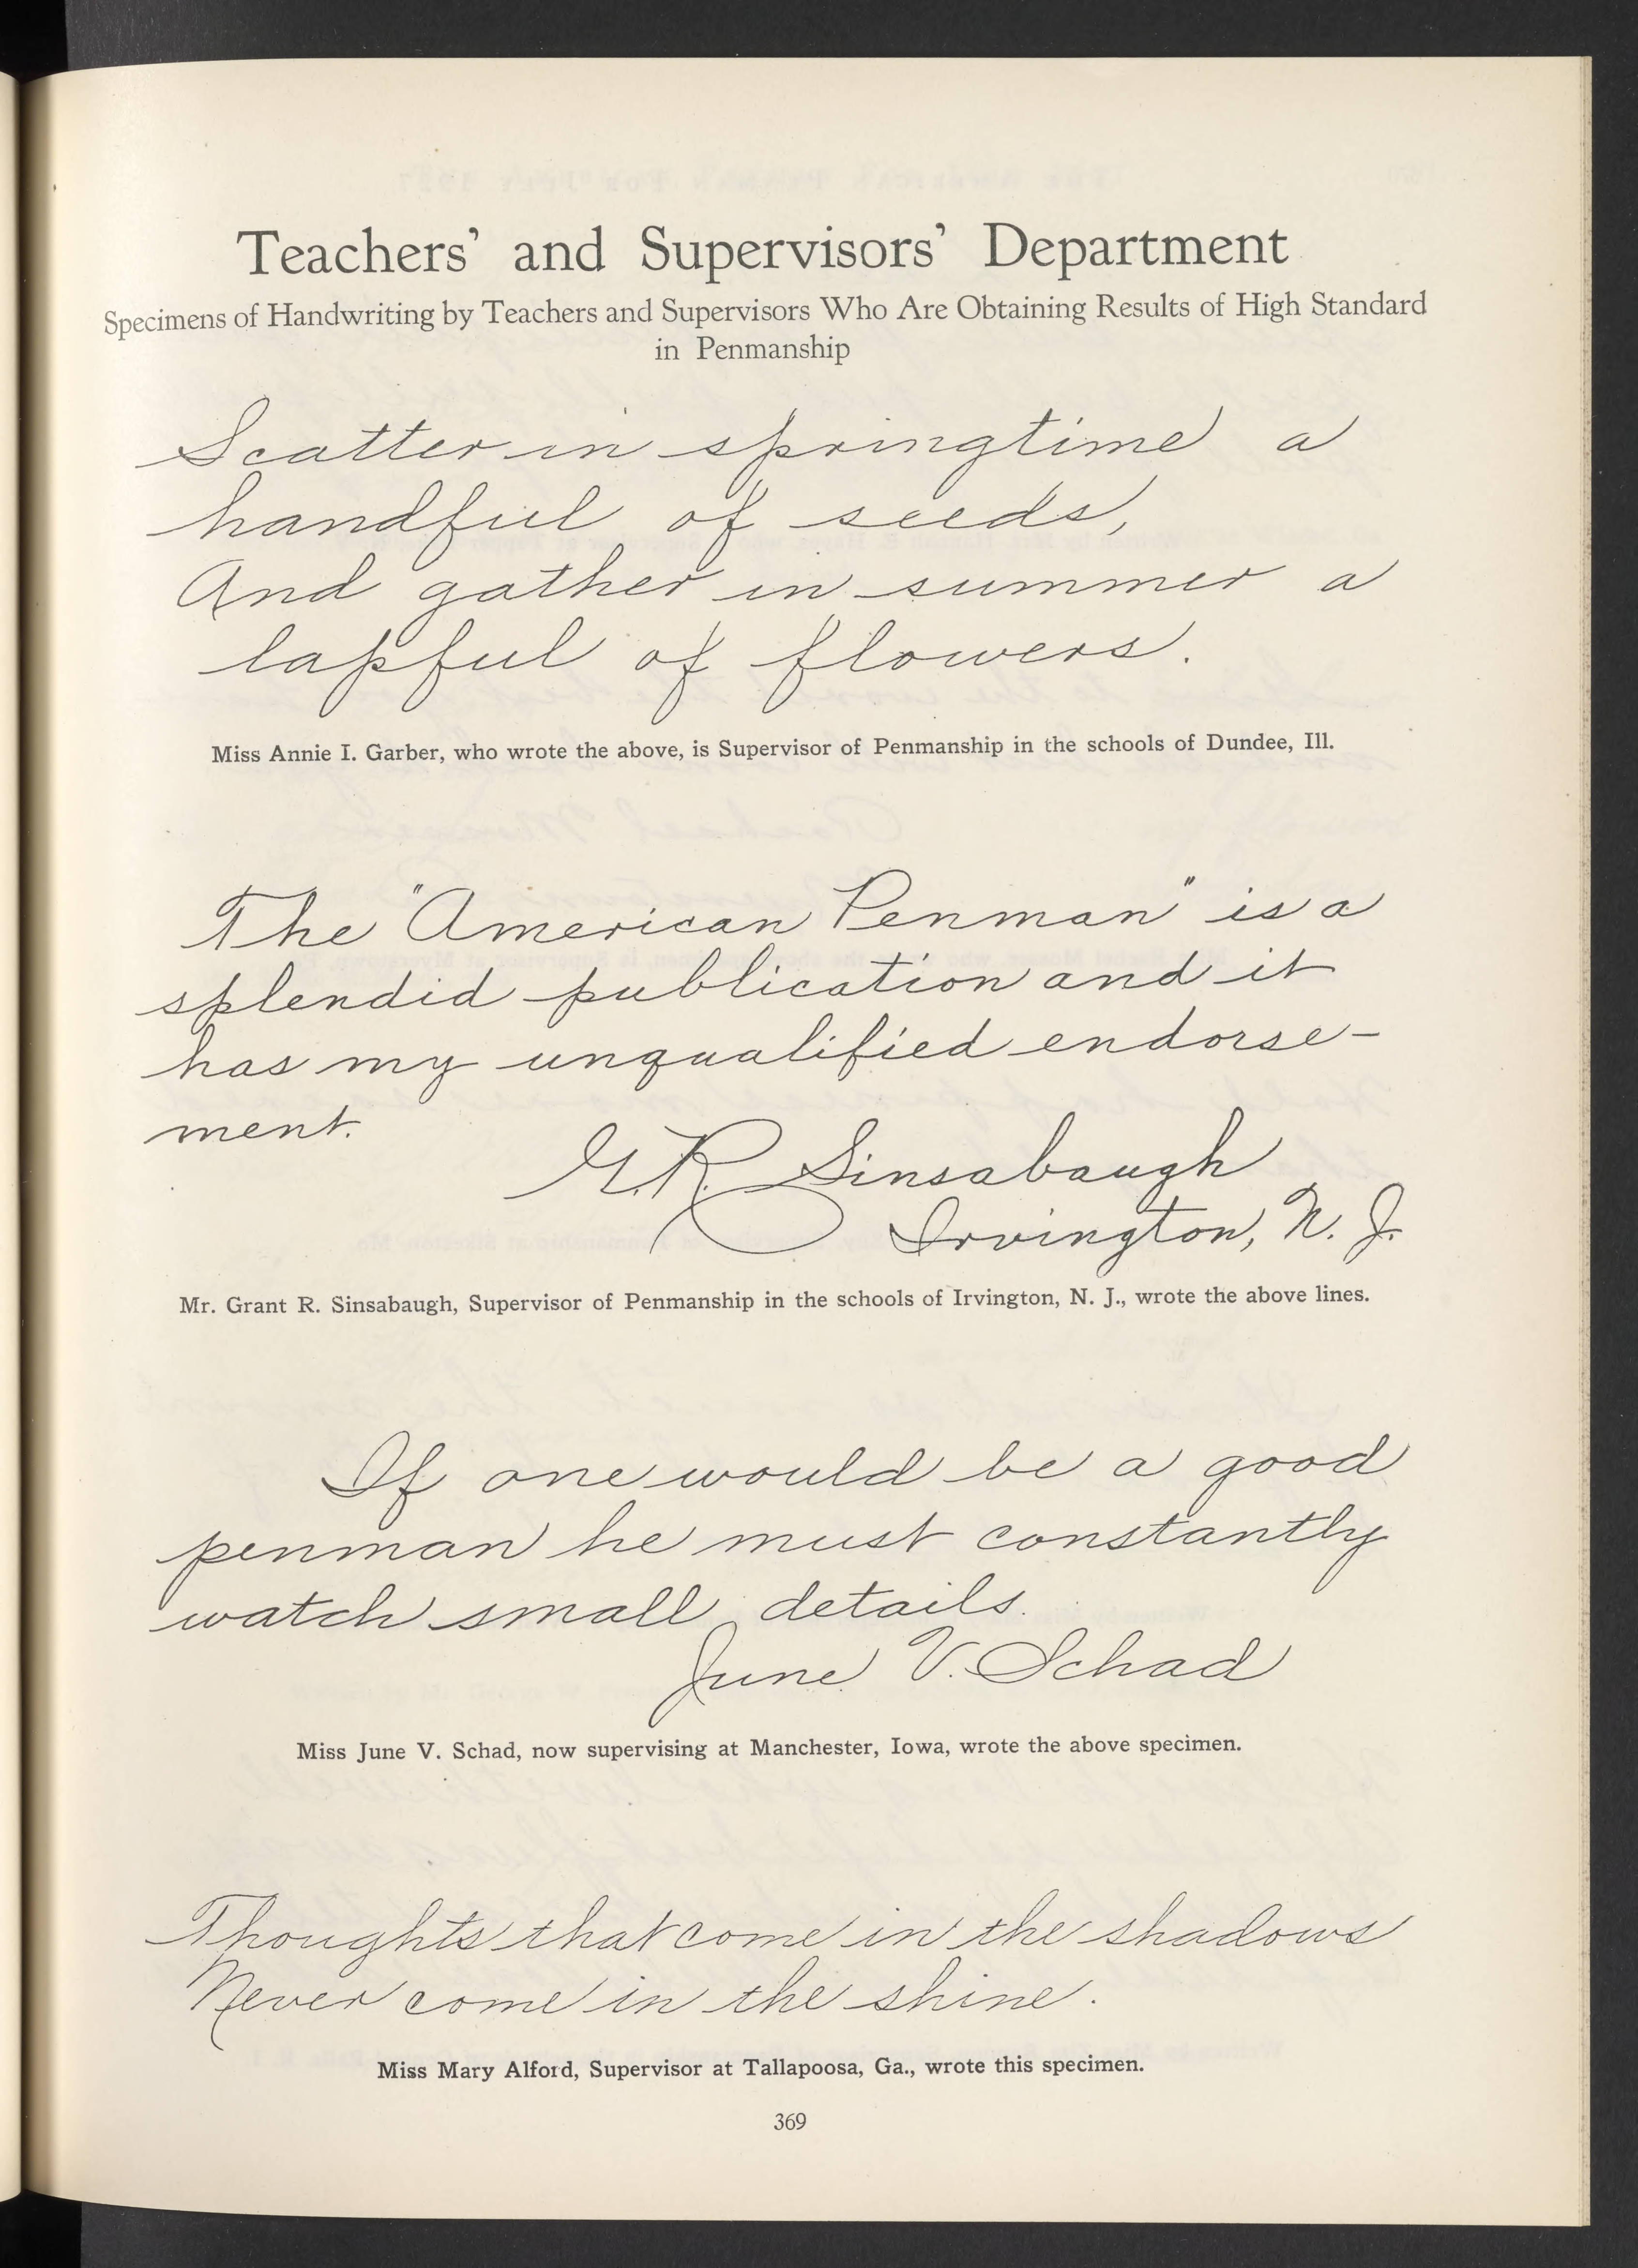 Teachers’ and Supervisors’ Department
Specimens of Handwriting by Teachers and Supervisors Who Are Obtaining Results of High Standard
in Penmanship
Scatter in springtime a
handful of seeds,
And gather in summer a
lapful of flowers.
Miss Annie I. Garber, who wrote the above, is Supervisor of Penmanship in the schools of Dundee, Ill.
The "American Penman" is a
splendid publication and it
has my unqualified endorse-
ment.
G. R. Sinsabaugh
Irvington, N. J.
Mr. Grant R. Sinsabaugh, Supervisor of Penmanship in the schools of Irvington, N. J., wrote the above lines.
If one would be a good
penman he must constantly
watch small details.
June V. Schad
Miss June V. Schad, now supervising at Manchester, Iowa, wrote the above specimen.
Thoughts that come in the shadows
Never come in the shine.
Miss Mary Alford, Supervisor at Tallapoosa, Ga., wrote this specimen.
369